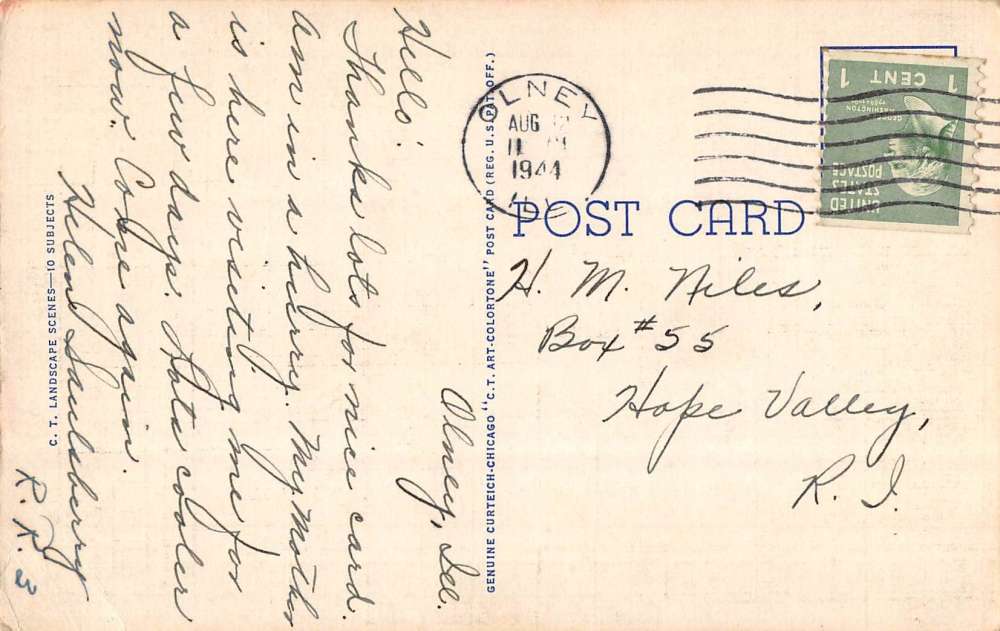 Olney, Ill.
Hello:
Thanks lots for nice card.
Am in a hurry. My Mother
is here visiting me for
a few days. Lots cooler
now. Come again.
Helen Saulsberry
R. R. 3
C. T. LANDSCAPE SCENES—10 SUBJECTS
GENUINE CURTEICH-CHICAGO "C. T. ART-COLORTONE" POST CARD (REG. U. S. PAT. OFF.)
OLNEY
AUG
11
1944
ILL.
1 CENT 1
GEORGE
WASHINGTON
UNITED
STATES
POSTAGE
POST CARD
H. M. Niles,
Box #55
Hope Valley,
R. I.